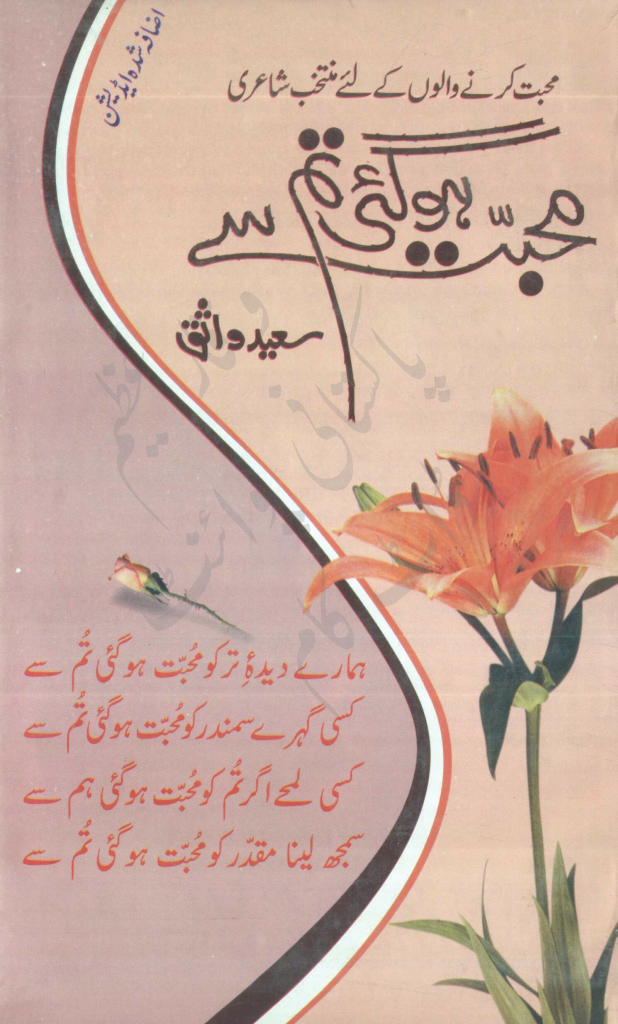 اضافہ شدہ ایڈیشن
محبت کرنے والوں کے لئے منتخب شاعری
محبّت ہو گئی تم سے
سعید واثق
ہمارے دیدۂ تر کو مُحبّت ہو گئی تُم سے
کسی گہرے سمندر کو مُحبّت ہو گئی تُم سے
کسی لمحے اگر تُم کو مُحبّت ہو گئی ہم سے
سمجھ لینا مقدّر کو مُحبّت ہو گئی تُم سے
پاکستانی پوائنٹ